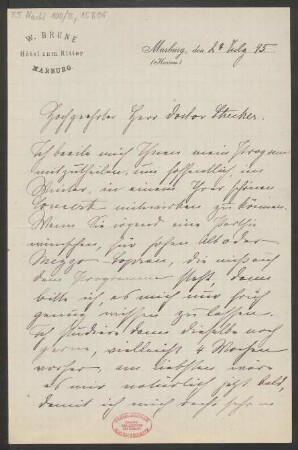 55 Nachl 100/B, 15895
W. BRUNE
Hôtel zum Ritter
MARBURG.
Marburg, den 24 Julg 95
(Hessen)
Hochgeehrter Herr Doctor Strecker.
Ich beeile mich Ihnen mein Program
mitzutheilen, um hoffentlich, im
Winter, in einem Ihrer schönen
Concerte mitwirken zu können.
Wenn Sie irgend eine Parthie
wünschen, für hohen Alt oder
Mezzo-Sopran, die nicht auf
dem Programme steht, dann
bitte ich, es mich nur früh
genug wissen zu lassen.
Ich studiere dann dieselbe noch
gerne, vielleicht 4 Wochen
vorher, am liebsten wäre
es mir natürlich jetzt bald,
damit ich mich recht